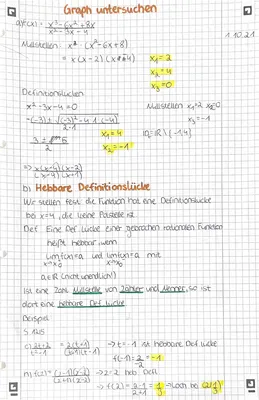 Graph untersuchen
a) f(x) = x³-6x²+8x / x²-3x-4
1.10.21
Nullstellen: x (x²-6x+8)
= x(x-2)(x-4)
x₁=2
x₂=4
x₃=0
Definitionslücken
x²-3x-4=0
Nullstellen x₁=2 x₂=0
x₃=-1
-(-3)±√(-3)²-4·1·(-4) / 2·1
3 ± 5 / 2
x₁=4
x₂=-1
ID=ℝ\{-1,4}
=> x(x-4)(x-2) / (x-4)(x+1)
b) Hebbare Definitionslücke
Wir stellen fest die Funktion hat eine Definitionslücke
bei x=4, die keine Polstelle ist.
Def Eine Def. Lücke einer gebrochen rationalen Funktion
heißt hebbar, wenn
lim f(x)=a und lim f(x)=a mit
x→x₀ x→x₀
a∈ℝ (nicht unendlich!)
Ist eine Zahl Nullstelle von Zähler und Nenner, so ist
dort eine hebbare Def. Lücke
Beispiel
S. 125
c) 2t+2 / t²-1 = 2(t+1) / (t+1)(t-1) => t=-1 ist hebbare Def lücke
f(-1) = 2/-2 = -1
=> z=2 heb. Def.
=> f(2) = 2-1 / 2+1 = 1/3 => Loch bei (2|1/3)